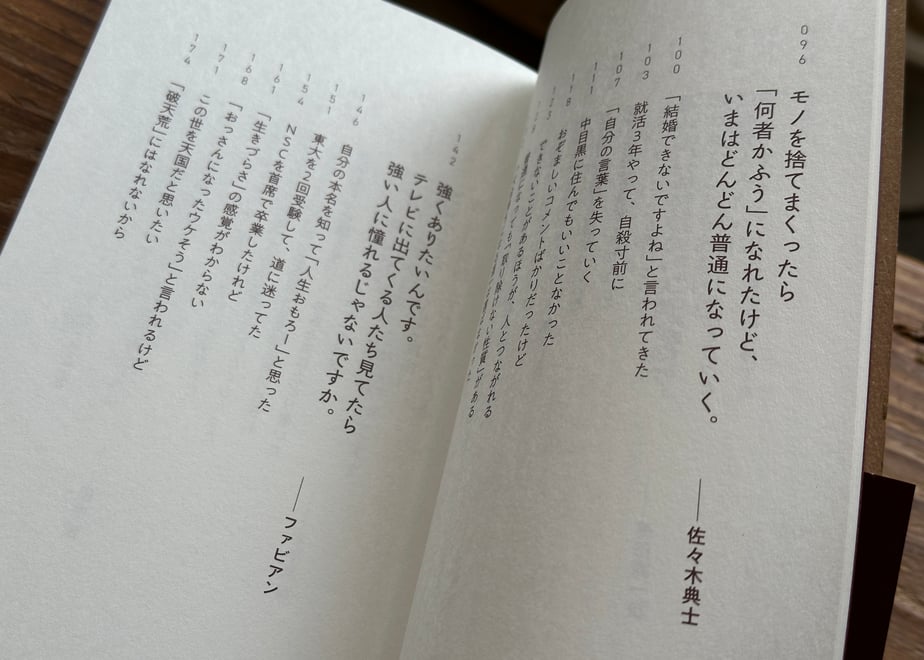 096
モノを捨てまくったら
「何者かふう」になれたけど、
いまはどんどん普通になっていく。
――佐々木典士
100 「結婚できないですよね」と言われてきた
103 就活3年やって、自殺寸前に
107 「自分の言葉」を失っていく
111 中目黒に住んでもいいことなかった
118 おぞましいコメントばかりだったけど
123 できないことがあるほうが、人とつながれる
普通になっても「取り除けない性質」がある
142
強くありたいんです。
テレビに出てくる人たち見てたら
強い人に憧れるじゃないですか。
――ファビアン
146 自分の本名を知って「人生おもろー」と思った
151 東大を2回受験して、道に迷ってた
154 NSCを首席で卒業したけれど
161 「生きづらさ」の感覚がわからない
168 「おっさんになったウケそう」と言われるけど
171 この世を天国だと思いたい
174 「破天荒」にはなれないから